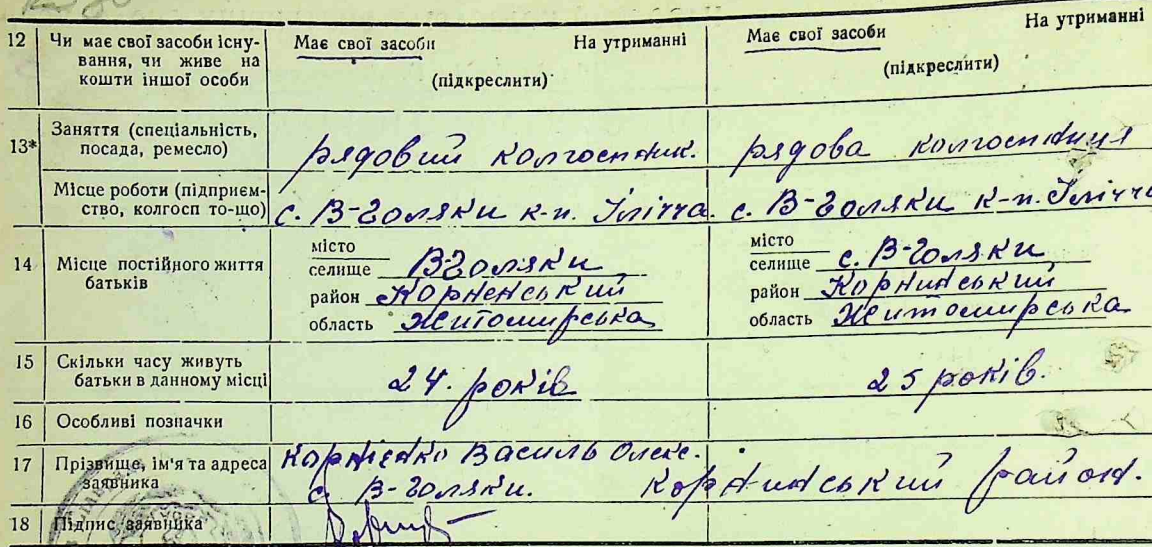 12 Чи має свої засоби існу- Має свої засоби На утриманні Має свої засоби На утриманні
вання, чи живе на
кошти іншої особи (підкреслити) (підкреслити)
13* Заняття (спеціальність,
посада, ремесло) рядовий колгоспник. рядова колгоспниця
Місце роботи (підприєм-
ство, колгосп то-що) с. В-Голяки к-п. Ілічча. с. В-Голяки к-п. Ілічча
14 Місце постійного життя
батьків
місто
селище В-Голяки
район Корненський
область Житомирська
місто
селище с. В-Голяки
район Корнинський
область Житомирська
15 Скільки часу живуть
батьки в данному місці 24. років 25 років.
16 Особливі позначки
17 Прізвище, ім'я та адреса Корнієнко Василь Олекс.
заявника с. В-Голяки. Корнинський район.
18 Підпис заявника